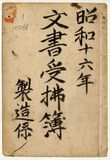 昭和十六年
文書受拂簿
製造係